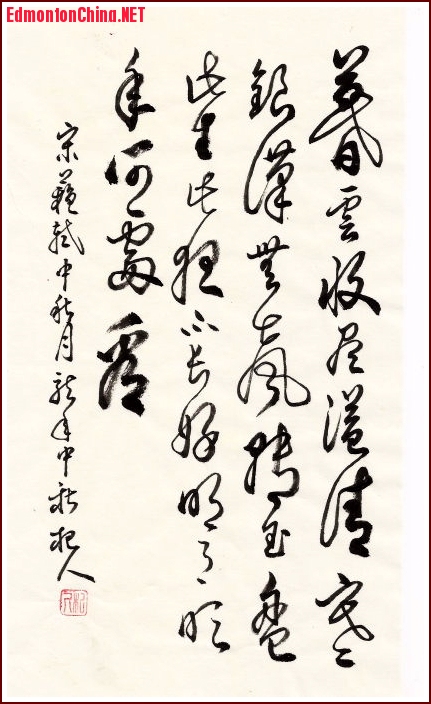 EdmontonChina.NET
暮雲收盡溢清寒
銀漢無聲轉玉盤
此生此夜不長好明月明
年何處看
宋蘇軾中秋月龍年中秋松人